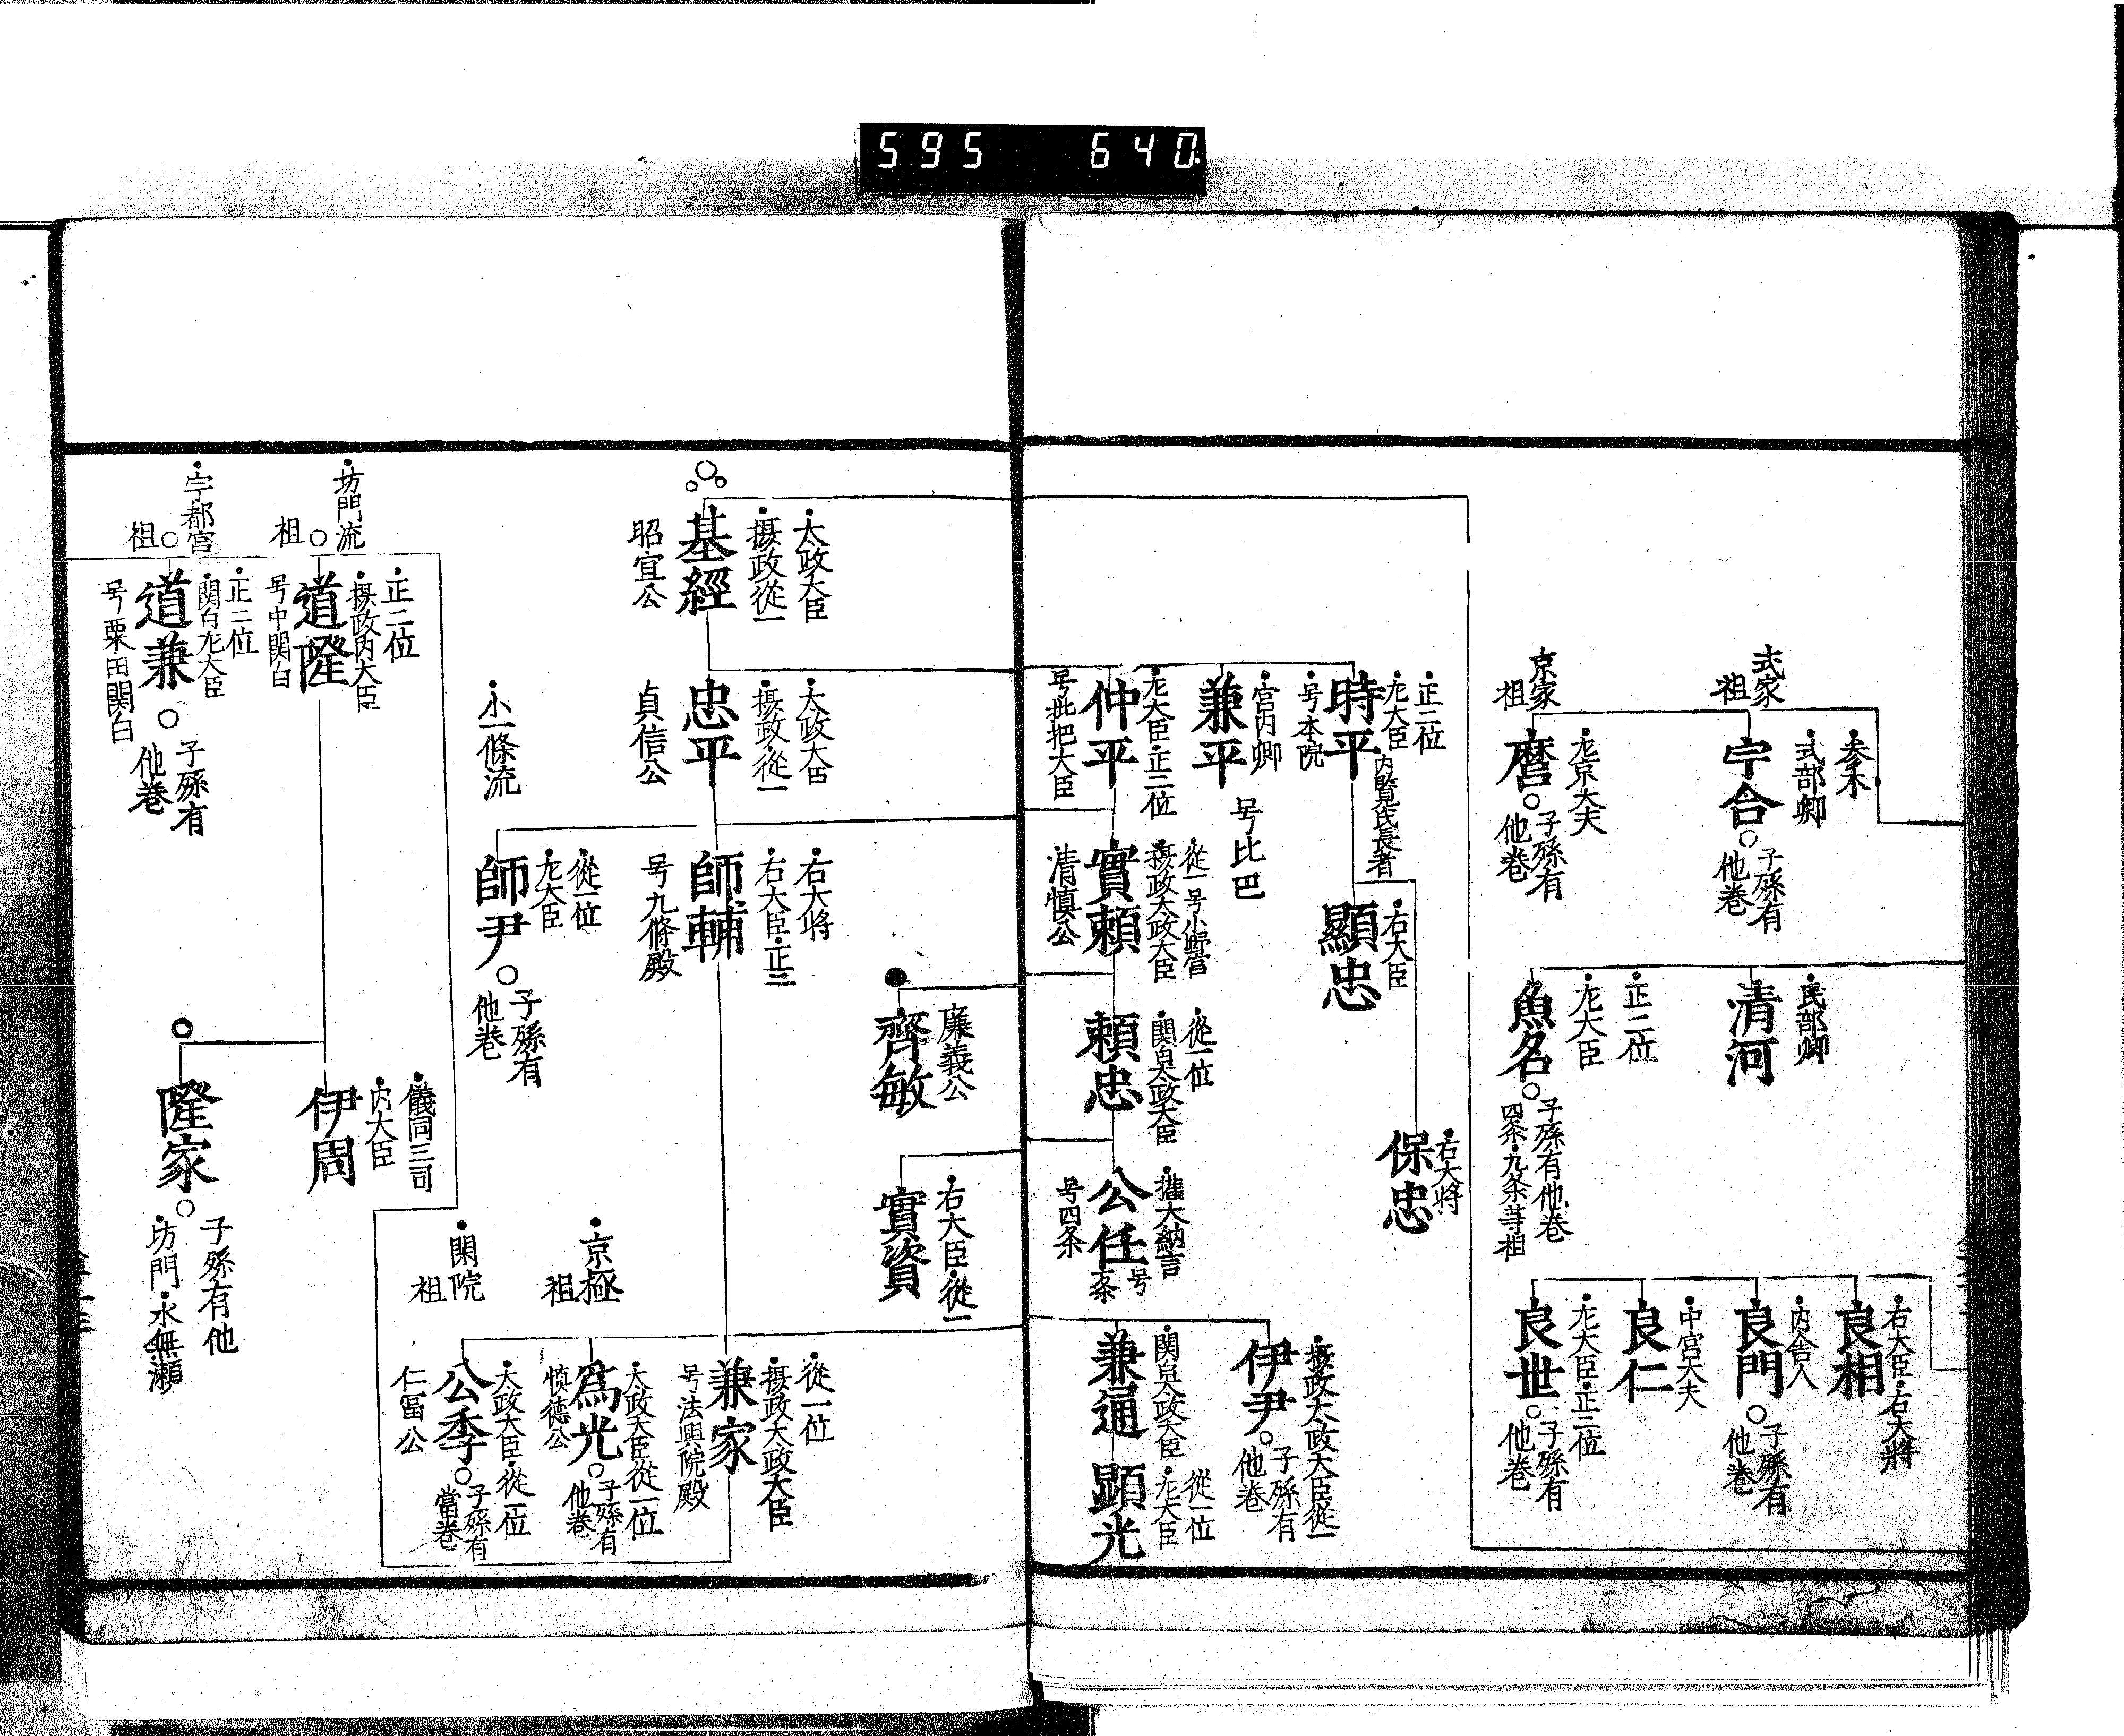 595 640
参木
式部卿
式家
祖
宇合
子孫有
他巻
左京大夫
京家
祖
麿
子孫有
他巻
民部卿
清河
正二位
左大臣
魚名
子孫有他巻
四条・九条等祖
右大臣・右大将
良相
内舎人
良門
子孫有
他巻
中宮大夫
良仁
左大臣・正二位
良世
子孫有
他巻
正二位
左大臣
時平
内覧氏長者
号本院
右大臣
顯忠
右大将
保忠
宮内卿
兼平
号比巴
左大臣・正二位
仲平
号批把大臣
從一号小野宮
摂政太政大臣
實頼
清慎公
從一位
関白太政大臣
頼忠
廉義公
齊敏
右大臣・從一
實資
權大納言
公任
号四条
摂政太政大臣從一
伊尹
子孫有
他巻
関白太政大臣
兼通
從一位
左大臣
顕光
太政大臣
摂政從一
基經
昭宣公
太政大臣
摂政・從一
忠平
貞信公
右大将
右大臣・正二
師輔
号九條殿
小一條流
從一位
左大臣
師尹
子孫有
他巻
從一位
摂政太政大臣
兼家
号法興院殿
京極
祖
太政大臣從一位
為光
子孫有
他巻
慎徳公
閑院
祖
太政大臣・從一位
公季
子孫有
當巻
仁冨公
坊門流
祖
正二位
摂政内大臣
道隆
号中関白
儀同三司
内大臣
伊周
隆家
子孫有他
坊門・水無瀬
宇都宮
祖
正二位
関白左大臣
道兼
子孫有
他巻
号粟田関白